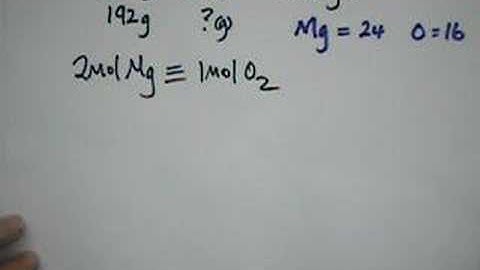 192g ?(g) Mg = 24 O = 16
2mol Mg ≡ 1mol O₂